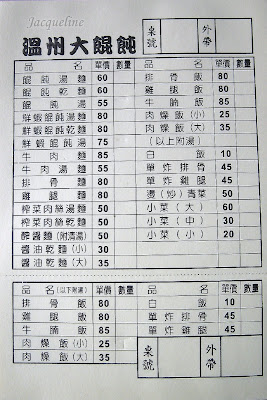 Jacqueline
溫州大餛飩
桌號
外帶
品名 單價 數量
餛飩湯麵 60
餛飩乾麵 60
餛飩湯 55
鮮蝦餛飩湯麵 80
鮮蝦餛飩乾麵 80
鮮蝦餛飩湯 75
牛肉麵 85
牛肉湯麵 55
排骨麵 80
雞腿麵 80
榨菜肉絲湯麵 50
榨菜肉絲乾麵 50
炸醬麵(附清湯) 50
醬油乾麵(小) 30
醬油乾麵(大) 35
品名 單價 數量
排骨飯 80
雞腿飯 80
牛腩飯 85
肉燥飯(小) 25
肉燥飯(大) 35
(以上附湯)
白飯 10
單炸排骨 45
單炸雞腿 45
燙(炒)青菜 50
小菜(大) 60
小菜(中) 30
小菜(小) 20
品名(以下附湯) 單價 數量
排骨飯 80
雞腿飯 80
牛腩飯 85
肉燥飯(小) 25
肉燥飯(大) 35
品名 單價 數量
白飯 10
單炸排骨 45
單炸雞腿 45
桌號
外帶